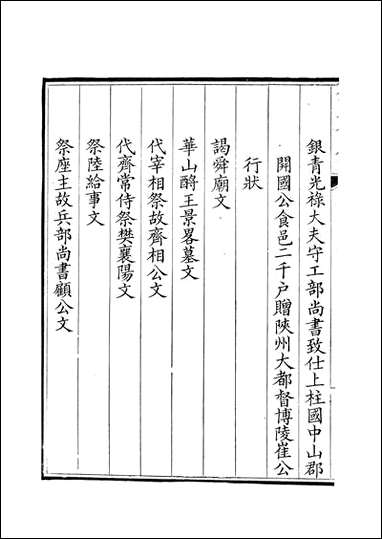 銀青光祿大夫守工部尚書致仕上柱國中山郡
開國公食邑二千户贈陜州大都督博陵崔公
行狀
謁舜廟文
華山酹王景畧墓文
代宰相祭故齊相公文
代齊常侍祭樊襄陽文
祭陸給事文
祭座主故兵部尚書顧公文